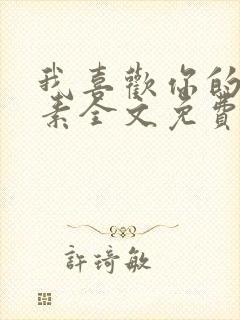 我喜歡你的
素全文免費
許琦敏